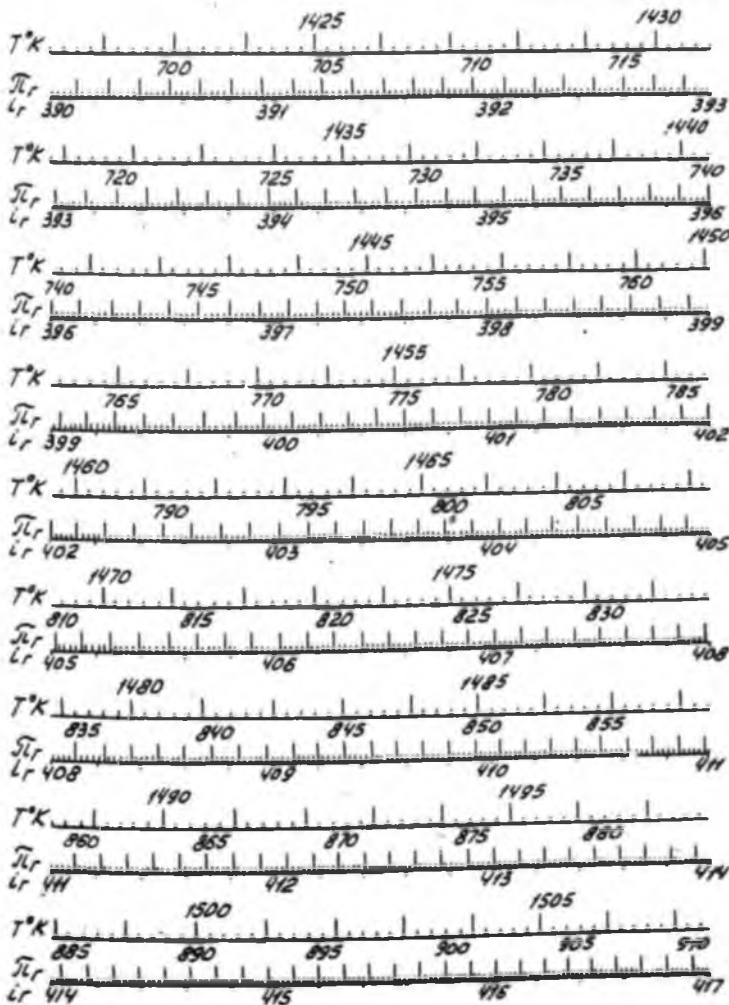 1425 1430
T°K
700 705 710 715
πr
ir 390 391 392 393
1435 1440
T°K
720 725 730 735 740
πr
ir 393 394 395 396
1445 1450
T°K
740 745 750 755 760
πr
ir 396 397 398 399
1455
T°K
765 770 775 780 785
πr
ir 399 400 401 402
1460 1465
T°K
790 795 800 805
πr
ir 402 403 404 405
1470 1475
T°K
810 815 820 825 830
πr
ir 405 406 407 408
1480 1485
T°K
835 840 845 850 855
πr
ir 408 409 410 411
1490 1495
T°K
860 865 870 875 880
πr
ir 411 412 413 414
1500 1505
T°K
885 890 895 900 905 910
πr
ir 414 415 416 417